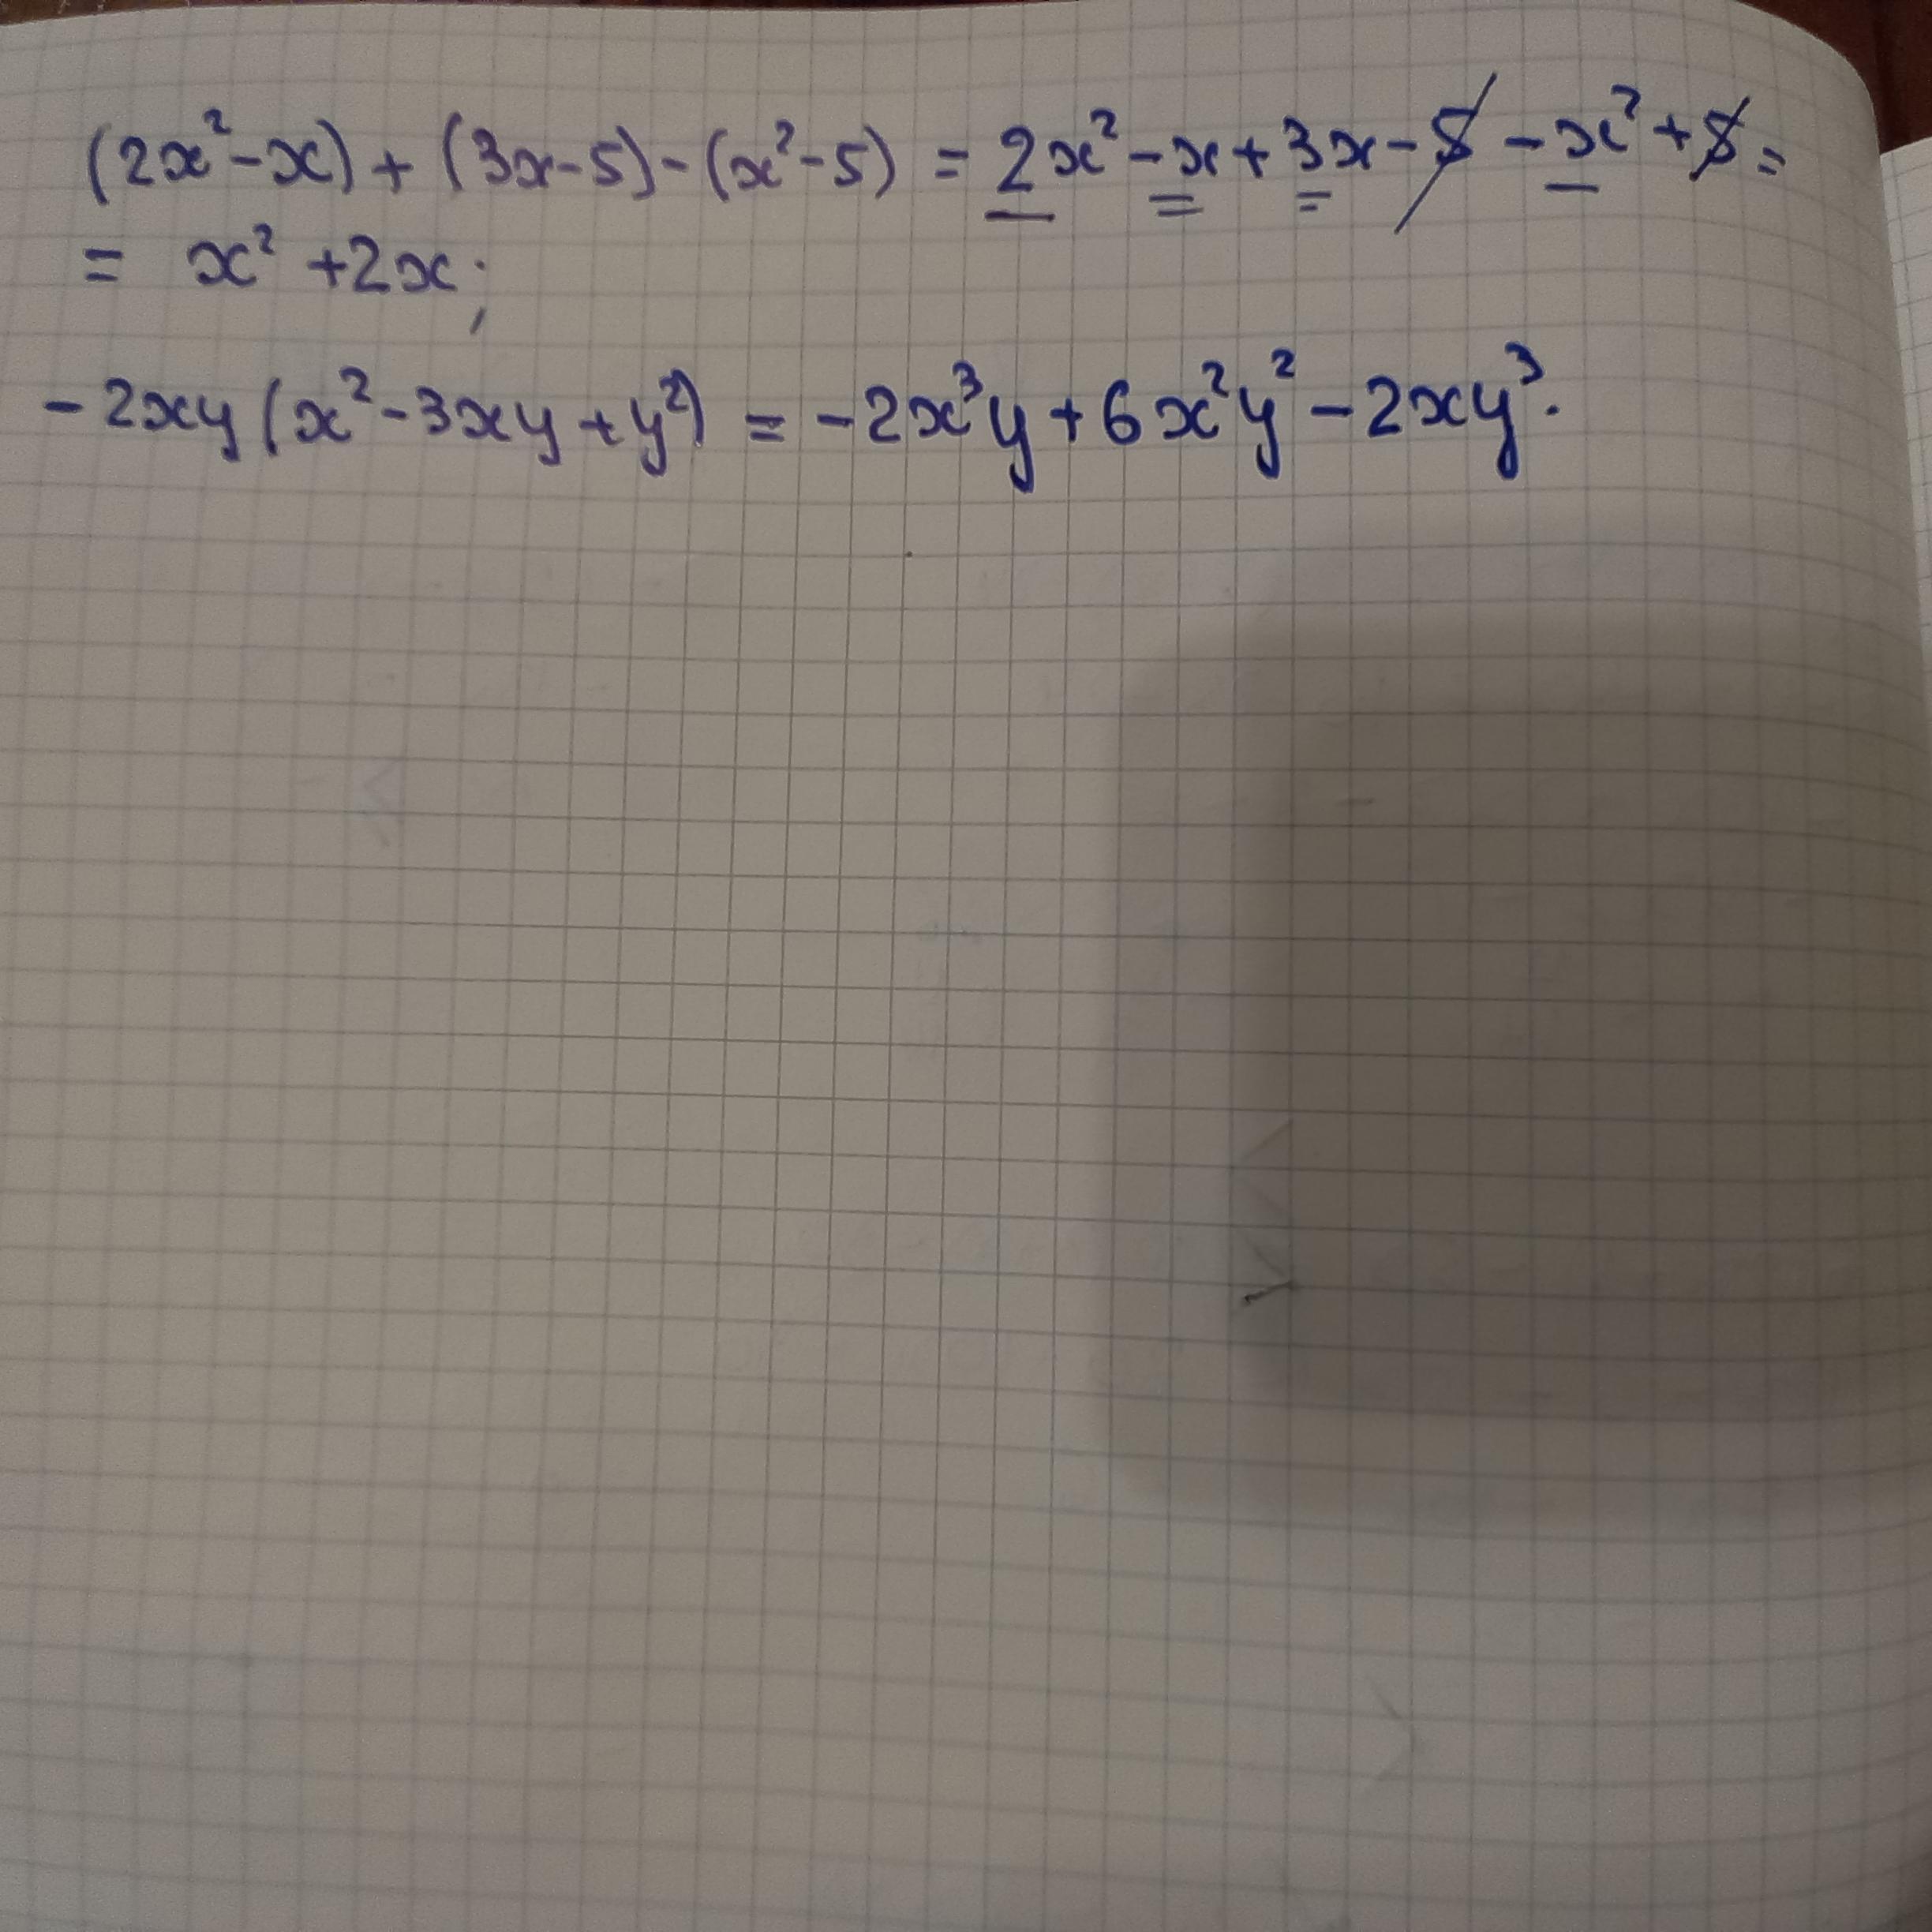 (2x²-x)+(3x-5)-(x²-5) = 2x²-x+3x-5-x²+5=
= x²+2x;
-2xy(x²-3xy+y²) = -2x³y+6x²y²-2xy³.